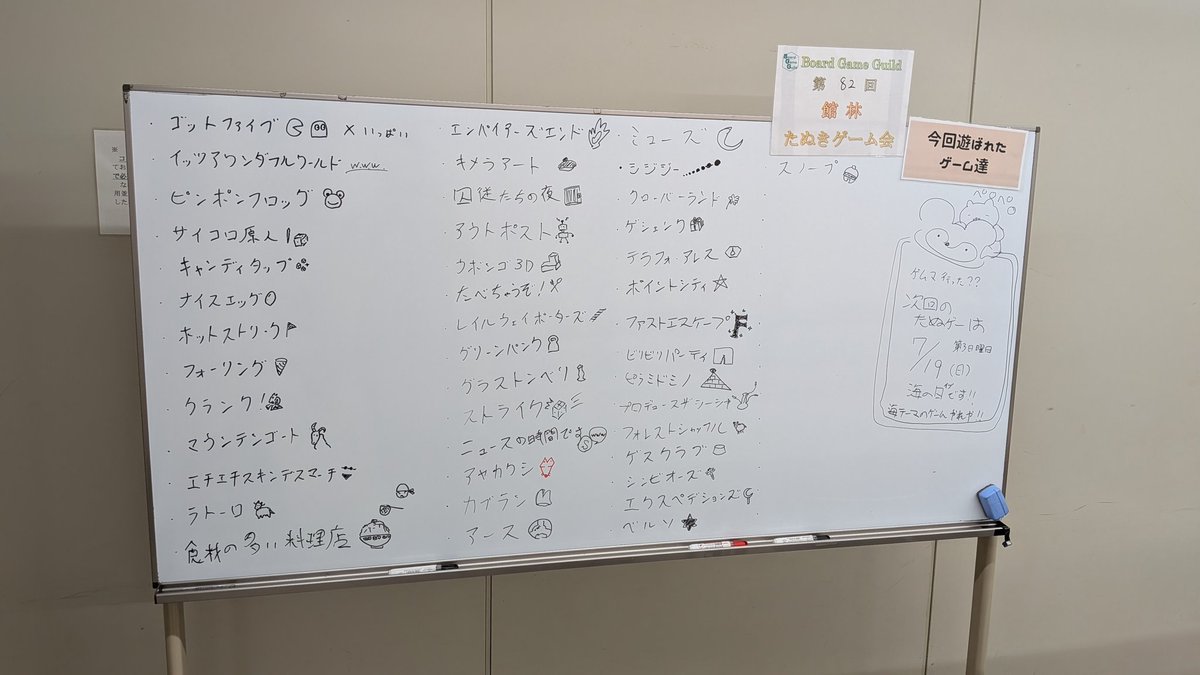 Board Game Guild
第 82 回
館林
たぬきゲーム会
今回遊ばれた
ゲーム達
・ゴットファイブ ×いっぱい
・イッツアワンダフルワールド www.
・ピンポンフロッグ
・サイコロ原人
・キャンディタップ
・ナイスエッグ
・ホットストリーク
・フォーリング
・クランク!
・マウンテンゴート
・エチエチスキンデスマーチ
・ラトーロ
・食材の多い料理店
・エンパイアーズエンド
・キメラアート
・囚徒たちの夜
・アウトポスト
・ウボンゴ3D
・たべちゃうぞ!
・レイルウェイボーダーズ
・グリーンバンク
・グラストンベリ
・ストライク
・ニュースの時間です
・アヤカクシ
・カブラン
・アース
・ミューズ
・シジジー
・クローバーランド
・ゲシェンク
・テラフォ・アレス
・ポイントシティ
・ファストエスケープ F
・ビリビリパーティ
・ピラミドミノ
・プロデュースザシーシャ
・フォレストシャッフル
・ゲスクラブ
・シンビオーズ
・エクスペディションズ
・ベルソ
スノープ
ペロペロ
ゲムマ行った??
次回の
たぬゲーは
7/19(日)
第3日曜日
海の日です!!
海テーマのゲームやれや!!